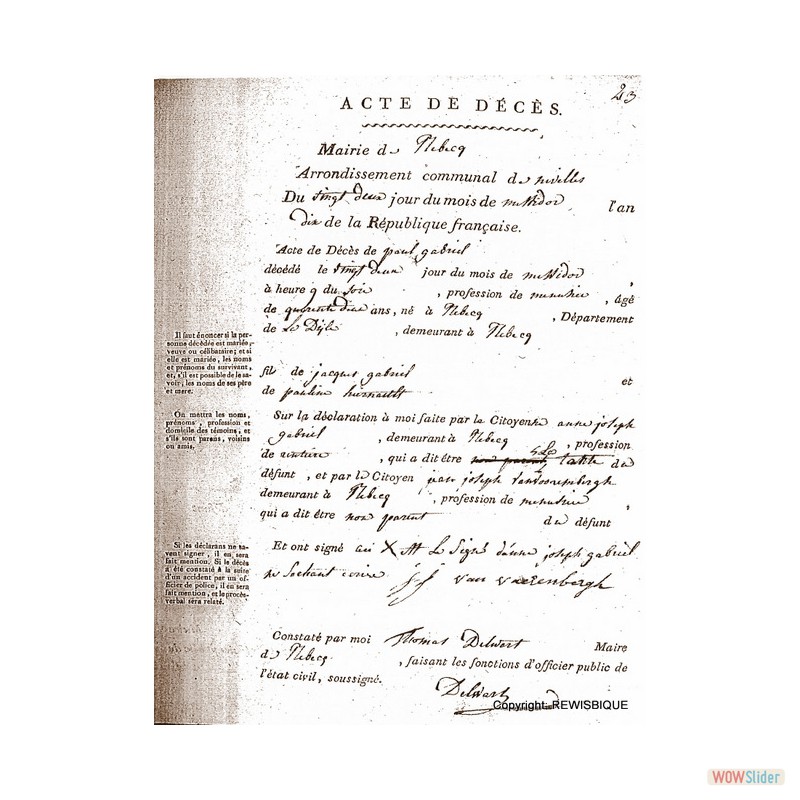 23
ACTE DE DÉCÈS.
Mairie de Rebecq
Arrondissement communal de nivelles
Du vingt deux jour du mois de messidor l'an
dix de la République française.
Acte de Décès de paul gabriel
décédé le vingt deux jour du mois de messidor ,
à heure 9 du soir , profession de menusier , âgé
de quarente deux ans, né à Rebecq , Département
de La Dijle , demeurant à Rebecq
Il faut énoncer si la per-
sonne décédée est mariée,
veuve ou célibataire; et si
elle est mariée, les noms
et prénoms du survivant,
et, s'il est possible de le sa-
voir, les noms de ses père
et mere.
fils de jacques gabriel et
de pauline
On mettra les noms,
prénoms, profession et
domicile des témoins, et
s'ils sont parens, voisins
ou amis.
Sur la déclaration à moi faite par la Citoyenne anne joseph
gabriel , demeurant à Rebecq , profession
de , qui a dit être non parent du
défunt , et par le Citoyen jean joseph
demeurant à Rebecq , profession de menusier ,
qui a dit être non parent du défunt
Si les déclarans ne sa-
vent signer, il en sera
fait mention. Si le décès
a été constaté à la suite
d'un accident par un of-
ficier de police, il en sera
fait mention, et le procès-
verbal sera relaté.
Et ont signé X Le Signe d'anne joseph gabriel
ne Sachant ecrire J J van vaerenbergh
Constaté par moi Thomas Delwart Maire
de Rebecq , faisant les fonctions d'officier public de
l'état civil, soussigné.
Delwart
Copyright: REWISBIQUE
WOWSlider